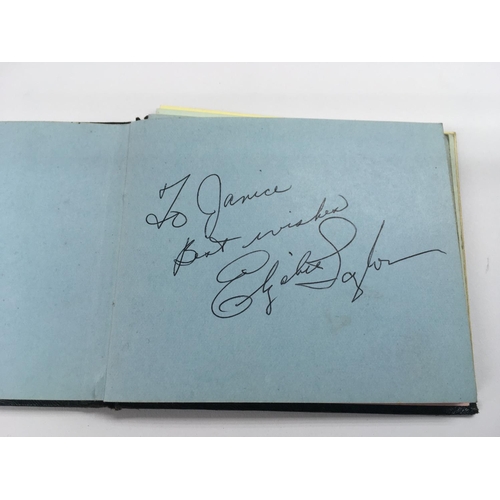 To Janice
Best wishes
Elizabeth Taylor